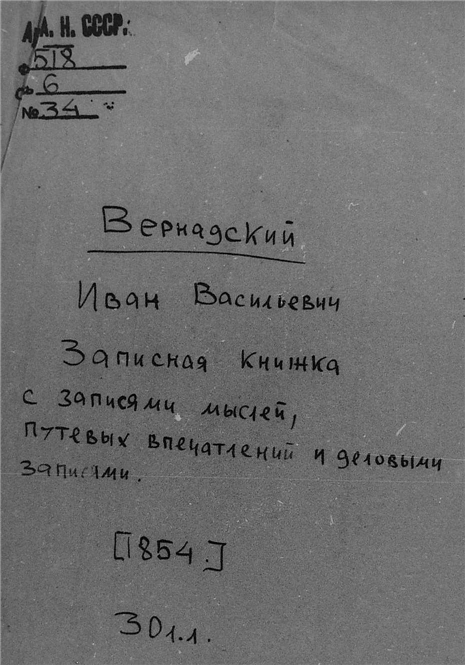 А. А. Н. СССР.
Ф 518
Оп 6
№ 34
Вернадский
Иван Васильевич
Записная книжка
с записями мыслей,
путевых впечатлений и деловыми
записями.
[1854.]
30 л.л.